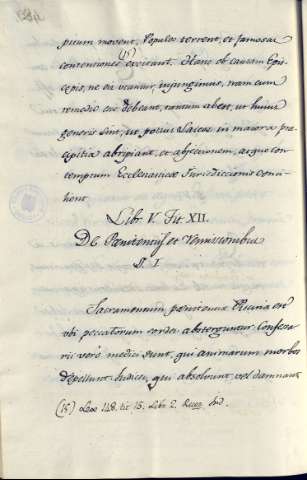 prium movent, Populos terrent, et famosas
contentiones excitant. (15) Hanc ob causam Epis-
copis, ne eis utantur, injungimus, nam cum
remedio esse debeant, tantum abest, ut hujus
generis sint, ut potius Laicos in majora præ-
cipitia abripiant, et abjectionem, atque con-
temptum Ecclesiasticæ Jurisdictionis conci-
lient.
Lib. V. Tit. XII.
De Pœnitentijs et Remissionibus
§. I
Sacramentum pœnitentiæ Piscina est
ubi peccatorum sordes absterguntur Confessa-
rii vero medici sunt, qui animarum morbos
depellunt Judices, qui absolvunt vel damnant
(15) Lex 148. tit. 15. Libr. 2. Recop. Ind.